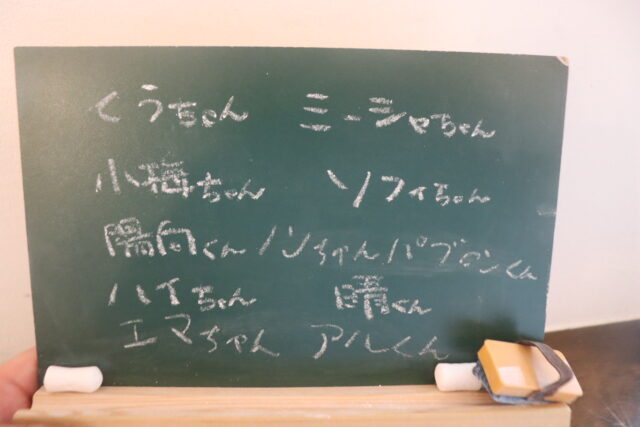 くうちゃん ミーシャちゃん
小梅ちゃん ソフィちゃん
陽向くん ノンちゃん パブロンくん
ハイちゃん 晴くん
エマちゃん アルくん